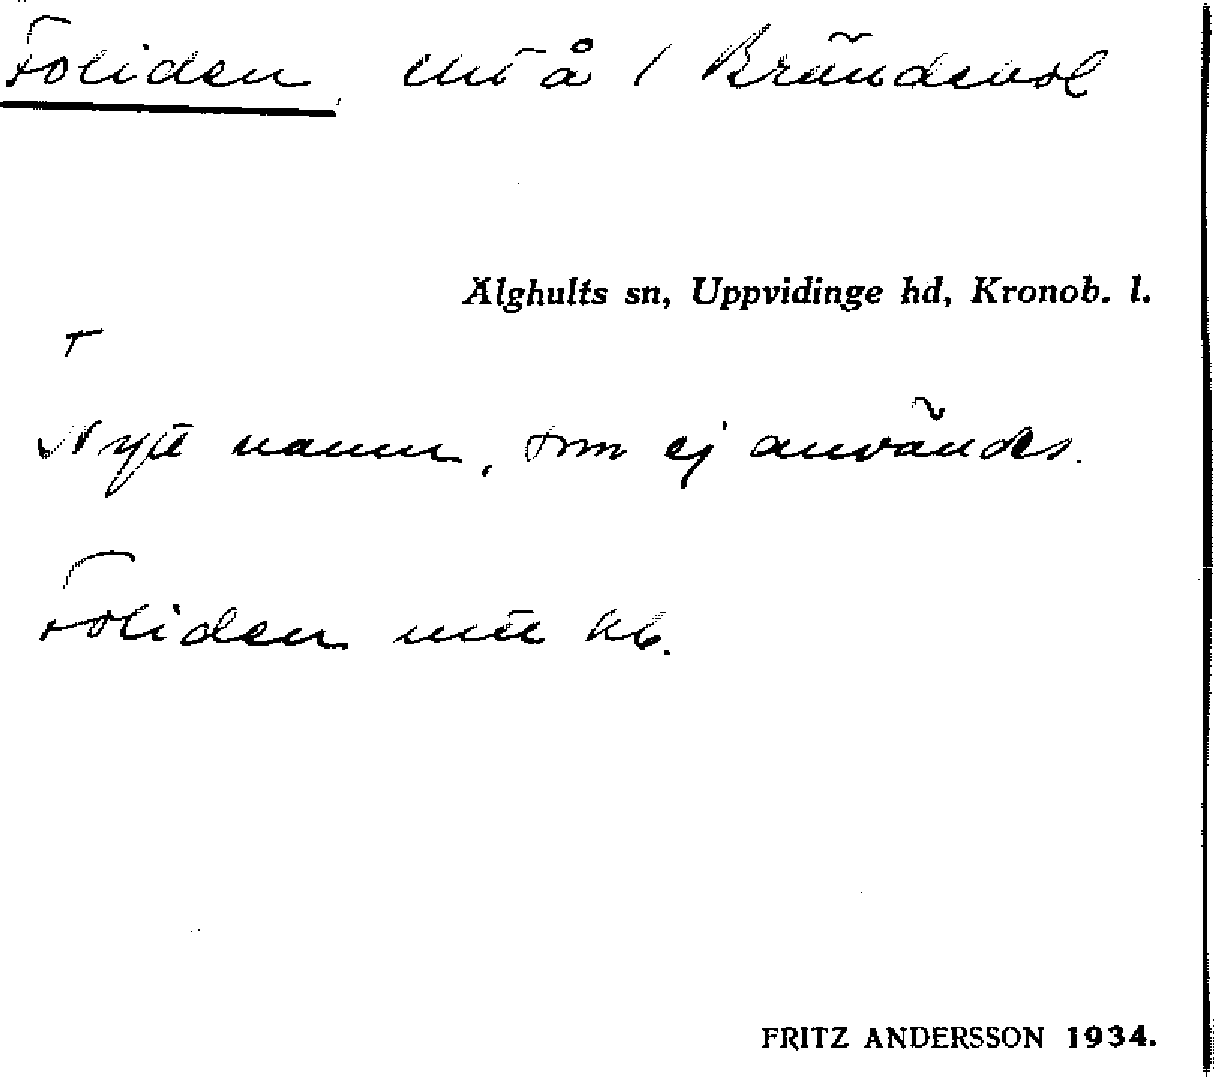 Foliden, å 1 Brändebol
Älghults sn, Uppvidinge hd, Kronob. l.
Nytt namn, som ej användes.
Foliden kb.
FRITZ ANDERSSON 1934.